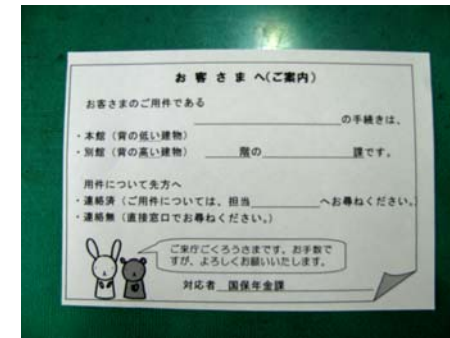 お客さまへ(ご案内)
お客さまのご用件である
＿＿＿＿＿＿＿＿＿＿の手続きは、
・本館（背の低い建物）
・別館（背の高い建物）　＿＿＿階の＿＿＿＿＿＿課です。
用件について先方へ
・連絡済（ご用件については、担当＿＿＿＿＿へお尋ねください。）
・連絡無（直接窓口でお尋ねください。）
ご来庁ごくろうさまです。お手数で
すが、よろしくお願いいたします。
対応者＿国保年金課＿＿＿＿＿＿